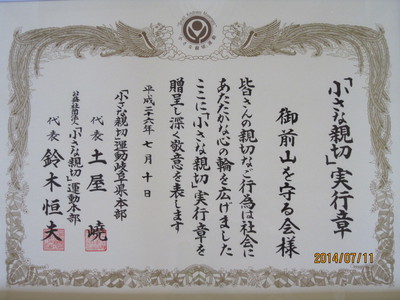 「小さな親切」実行章
御前山を守る会様
皆さんの親切なご行為は社会に
あたたかな心の輪を広げました
ここに「小さな親切」実行章を
贈呈し深く敬意を表します
平成二十六年七月十日
「小さな親切」運動岐阜県本部
代表 土屋 嶢
公益社団法人「小さな親切」運動本部
代表 鈴木恒夫
2014/07/11